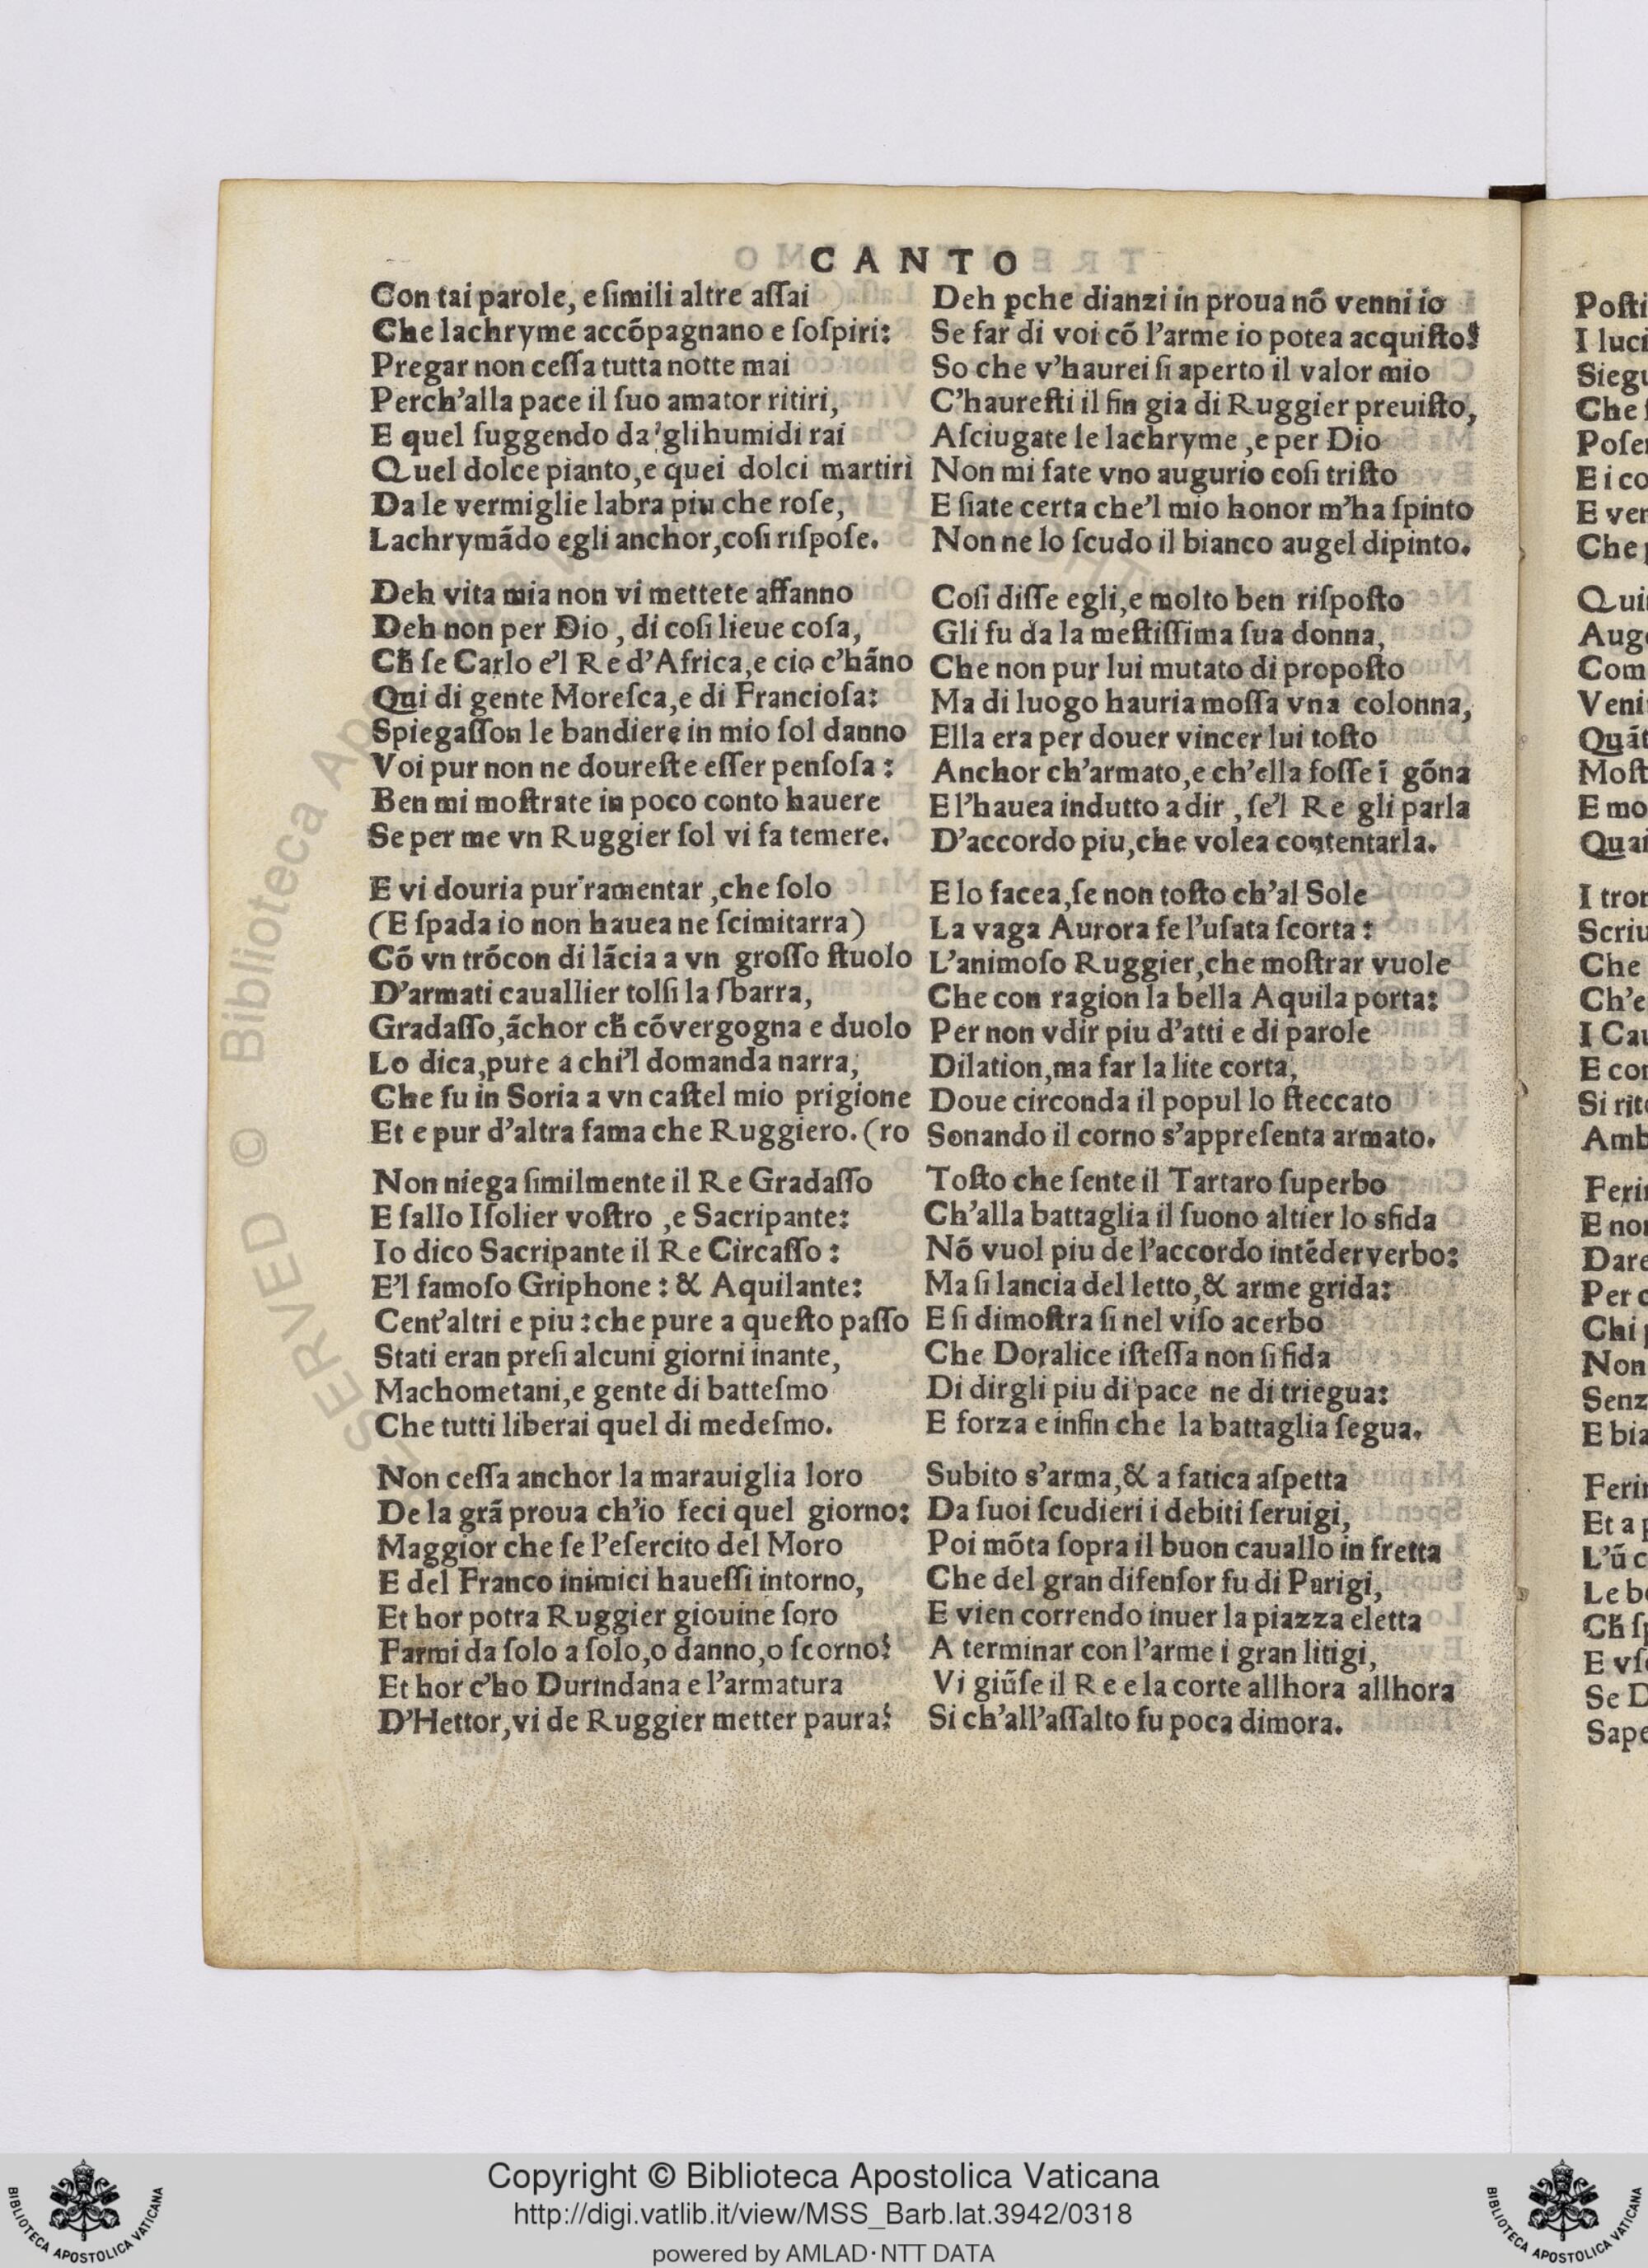 CANTO
Con tai parole, e ſimili altre aſſai
Che lachryme accõpagnano e ſoſpiri:
Pregar non ceſſa tutta notte mai
Perch'alla pace il ſuo amator ritiri,
E quel ſuggendo da'gli humidi rai
Quel dolce pianto, e quei dolci martiri
Da le vermiglie labra piu che roſe,
Lachrymãdo egli anchor, coſi riſpoſe.
Deh vita mia non vi mettete affanno
Deh non per Dio, di coſi lieue coſa,
Cħ ſe Carlo e'l Re d'Africa, e cio c'hãno
Qui di gente Moreſca, e di Francioſa:
Spiegaſſon le bandiere in mio ſol danno
Voi pur non ne doureſte eſſer penſoſa:
Ben mi moſtrate in poco conto hauere
Se per me vn Ruggier ſol vi fa temere.
E vi douria pur ramentar, che ſolo
(E ſpada io non hauea ne ſcimitarra)
Cõ vn trõcon di lãcia a vn groſſo ſtuolo
D'armati cauallier tolſi la ſbarra,
Gradaſſo, ãchor cħ cõ vergogna e duolo
Lo dica, pure a chi'l domanda narra,
Che fu in Soria a vn caſtel mio prigione
Et e pur d'altra fama che Ruggiero. (ro
Non niega ſimilmente il Re Gradaſſo
E ſallo Iſolier voſtro, e Sacripante:
Io dico Sacripante il Re Circaſſo:
E'l famoſo Griphone: & Aquilante:
Cent'altri e piu: che pure a queſto paſſo
Stati eran preſi alcuni giorni inante,
Machometani, e gente di batteſmo
Che tutti liberai quel di medeſmo.
Non ceſſa anchor la marauiglia loro
De la grã proua ch'io feci quel giorno:
Maggior che ſe l'eſercito del Moro
E del Franco inimici haueſſi intorno,
Et hor potra Ruggier giouine ſoro
Farmi da ſolo a ſolo, o danno, o ſcorno?
Et hor c'ho Durindana e l'armatura
D'Hettor, vi de Ruggier metter paura?
Deh ꝑche dianzi in proua nõ venni io
Se far di voi cõ l'arme io potea acquiſto?
So che v'haurei ſi aperto il valor mio
C'haureſti il fin gia di Ruggier preuiſto,
Aſciugate le lachryme, e per Dio
Non mi fate vno augurio coſi triſto
E ſiate certa che'l mio honor m'ha ſpinto
Non ne lo ſcudo il bianco augel dipinto.
Coſi diſſe egli, e molto ben riſpoſto
Gli fu da la meſtiſſima ſua donna,
Che non pur lui mutato di propoſto
Ma di luogo hauria moſſa vna colonna,
Ella era per douer vincer lui toſto
Anchor ch'armato, e ch'ella foſſe ĩ gõna
E l'hauea indutto a dir, ſe'l Re gli parla
D'accordo piu, che volea contentarla.
E lo facea, ſe non toſto ch'al Sole
La vaga Aurora fe l'uſata ſcorta:
L'animoſo Ruggier, che moſtrar vuole
Che con ragion la bella Aquila porta:
Per non vdir piu d'atti e di parole
Dilation, ma far la lite corta,
Doue circonda il popul lo ſteccato
Sonando il corno s'appreſenta armato.
Toſto che ſente il Tartaro ſuperbo
Ch'alla battaglia il ſuono altier lo sfida
Nõ vuol piu de l'accordo intẽder verbo:
Ma ſi lancia del letto, & arme grida:
E ſi dimoſtra ſi nel viſo acerbo
Che Doralice iſteſſa non ſi fida
Di dirgli piu di pace ne di triegua:
E forza e infin che la battaglia ſegua.
Subito s'arma, & a fatica aſpetta
Da ſuoi ſcudieri i debiti ſeruigi,
Poi mõta ſopra il buon cauallo in fretta
Che del gran difenſor fu di Parigi,
E vien correndo inuer la piazza eletta
A terminar con l'arme i gran litigi,
Vi giũſe il Re e la corte allhora allhora
Si ch'all'aſſalto fu poca dimora.
Poſti
I luci
Siegu
Che
Poſe
E i co
E ve
Che
Qui
Aug
Com
Veni
Quãt
Moſt
E mo
Qua
I tro
Scriu
Che
Ch'e
I Ca
E co
Si rit
Amb
Feri
E no
Dare
Per
Chi
Non
Senz
E bia
Feri
Et a
L'ũ c
Le b
Cħ ſ
E vſ
Se D
Sape
© Biblioteca Ap
SERVED
Copyright © Biblioteca Apostolica Vaticana
http://digi.vatlib.it/view/MSS_Barb.lat.3942/0318
powered by AMLAD·NTT DATA
BIBLIOTECA APOSTOLICA VATICANA
BIBLIOTECA APOSTOLICA VATICANA